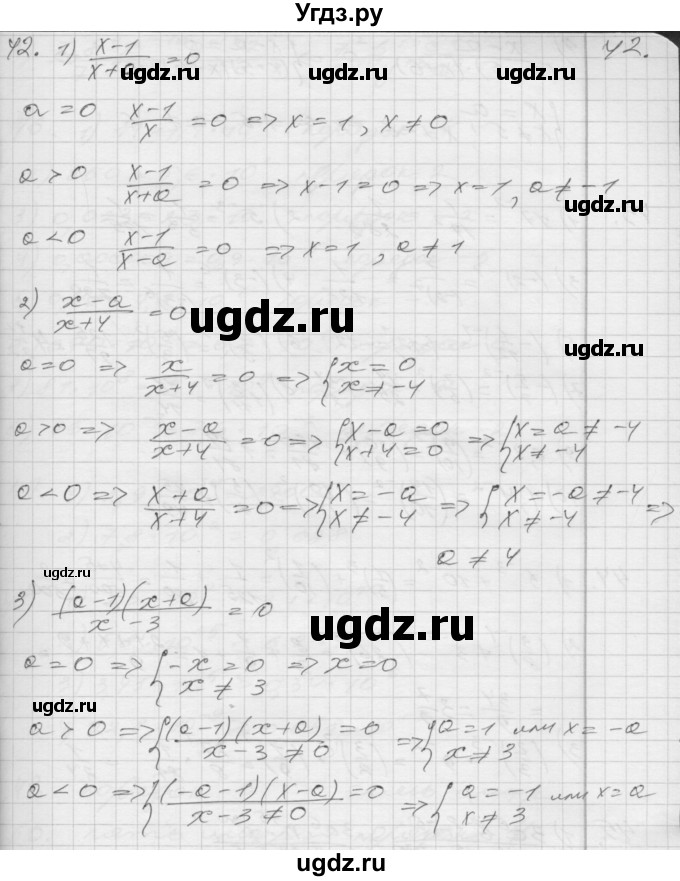 Угдз.ру
42. 1) (x-1)/(x+a) = 0 42.
ugdz.ru ugdz.ru
a = 0 (x-1)/x = 0 => x = 1, x ≠ 0
a > 0 (x-1)/(x+a) = 0 => x-1 = 0 => x = 1, a ≠ -1
ugdz.ru
a < 0 (x-1)/(x-a) = 0 => x = 1, a ≠ 1
2) (x-a)/(x+4) = 0
ugdz.ru ugdz.ru
a = 0 => x/(x+4) = 0 => { x = 0 x ≠ -4
a > 0 => (x-a)/(x+4) = 0 => { x-a = 0 x+4 = 0 => { x = a ≠ -4 x ≠ -4
a < 0 => (x+a)/(x+4) = 0 => { x = -a x ≠ -4 => { x = -a ≠ -4 x ≠ -4 =>
a ≠ 4
ugdz.ru
3) (a-1)(x+a)/(x-3) = 0
ugdz.ru
a = 0 => { -x = 0 x ≠ 3 => x = 0
ugdz.ru
a > 0 => { (a-1)(x+a) = 0 x-3 ≠ 0 => { a = 1 или x = -a x ≠ 3
a < 0 => { (-a-1)(x-a) = 0 x-3 ≠ 0 => { a = -1 или x = a x ≠ 3
ugdz.ru ugdz.ru
ugdz.ru